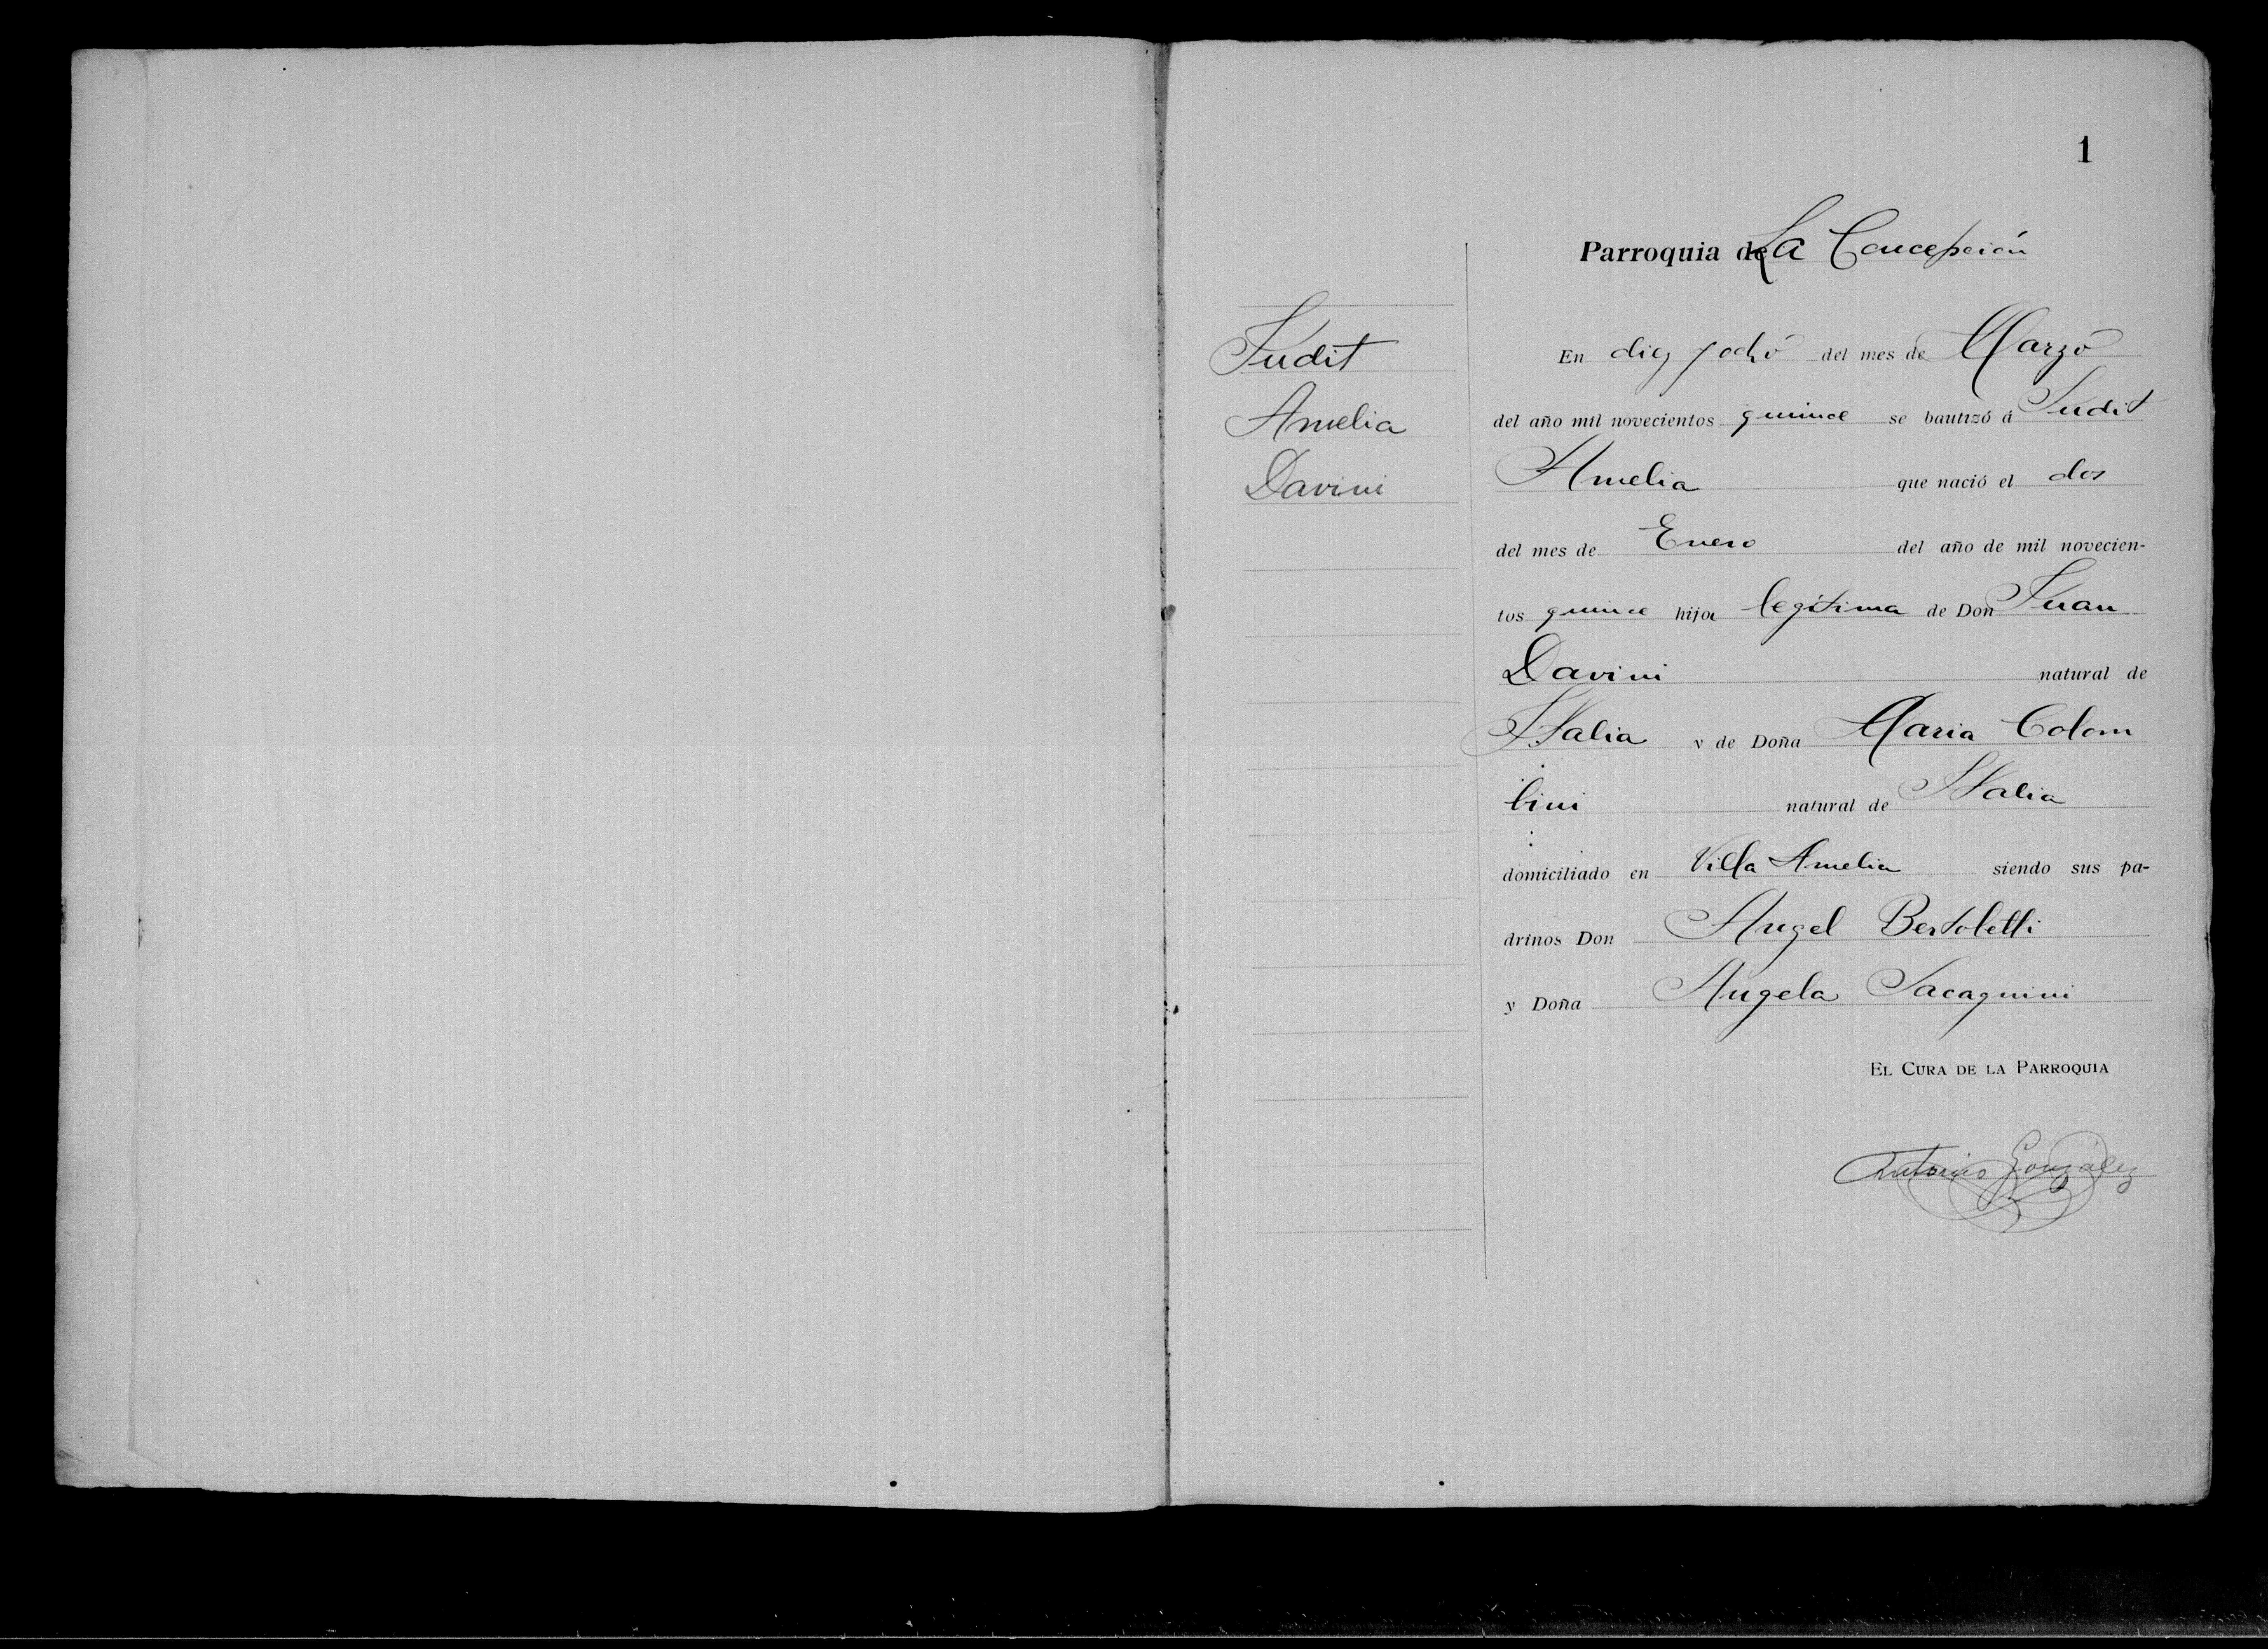 1
Parroquia de La Concepción
Judit
Amelia
Davini
En diez y ochó del mes de Marzó
del año mil novecientos quince se bautizó á Judit
Amelia que nació el dos
del mes de Enero del año de mil novecien-
tos quince hija legítima de Don Juan
Davini natural de
Italia y de Doña Maria Colom
bini natural de Italia
domiciliado en Villa Amelia siendo sus pa-
drinos Don Angel Bertoletti
y Doña Angela Sacagnini
EL CURA DE LA PARROQUIA
Antonio González